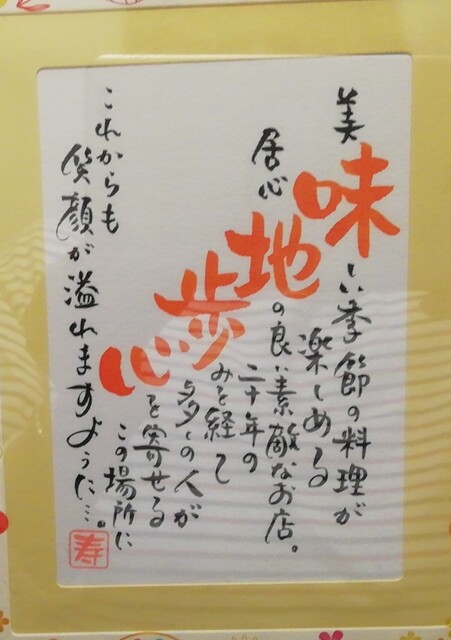 美味しい季節の料理が
楽しめる
居心地の良い素敵なお店。
二十年の
歩みを経て
多くの人が
心を寄せる
この場所に
これからも
笑顔が溢れますように…。
寿